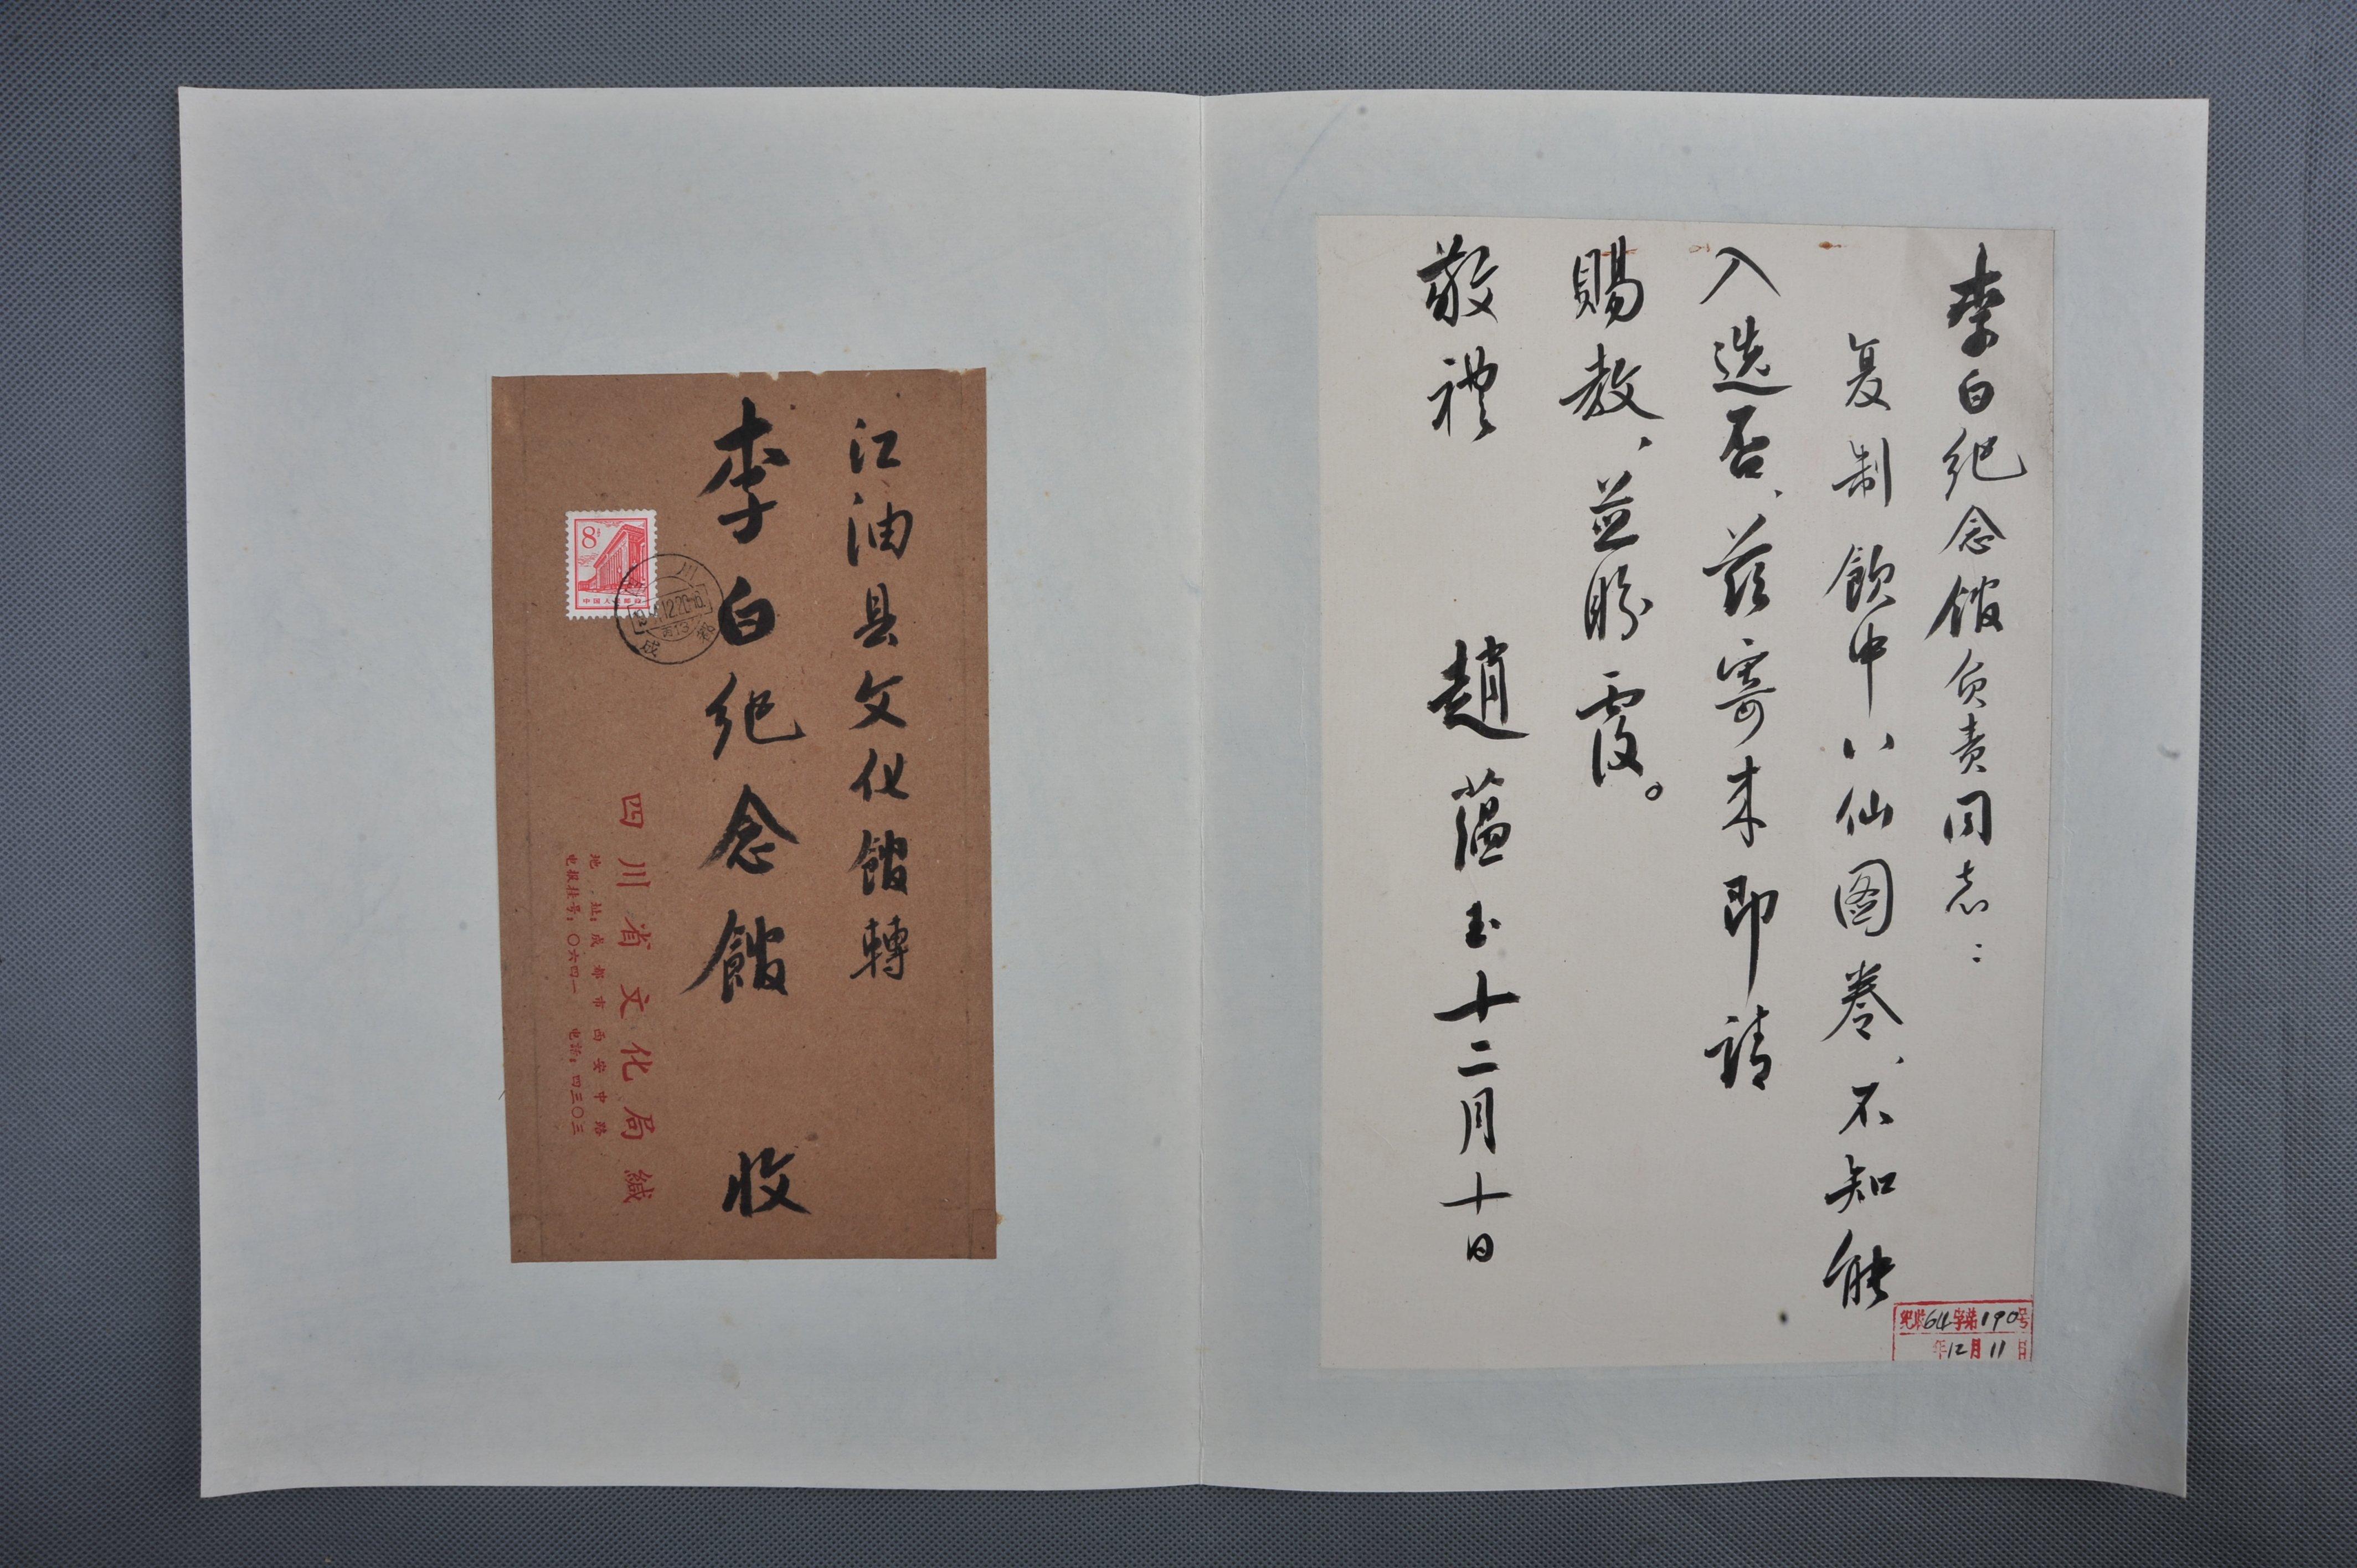 李白纪念馆负责同志：
复制饮中八仙图卷、不知能
入选否、兹寄来即請
賜教、並盼覆。
敬禮
趙蕴玉十二月十日
纪收64字第190号
年12月11日
江油县文化館轉
李白纪念館 收
8
中国人民邮政
四川省文化局緘
地址：成都市西安中路
电报挂号：〇六四一 电話：四三〇三